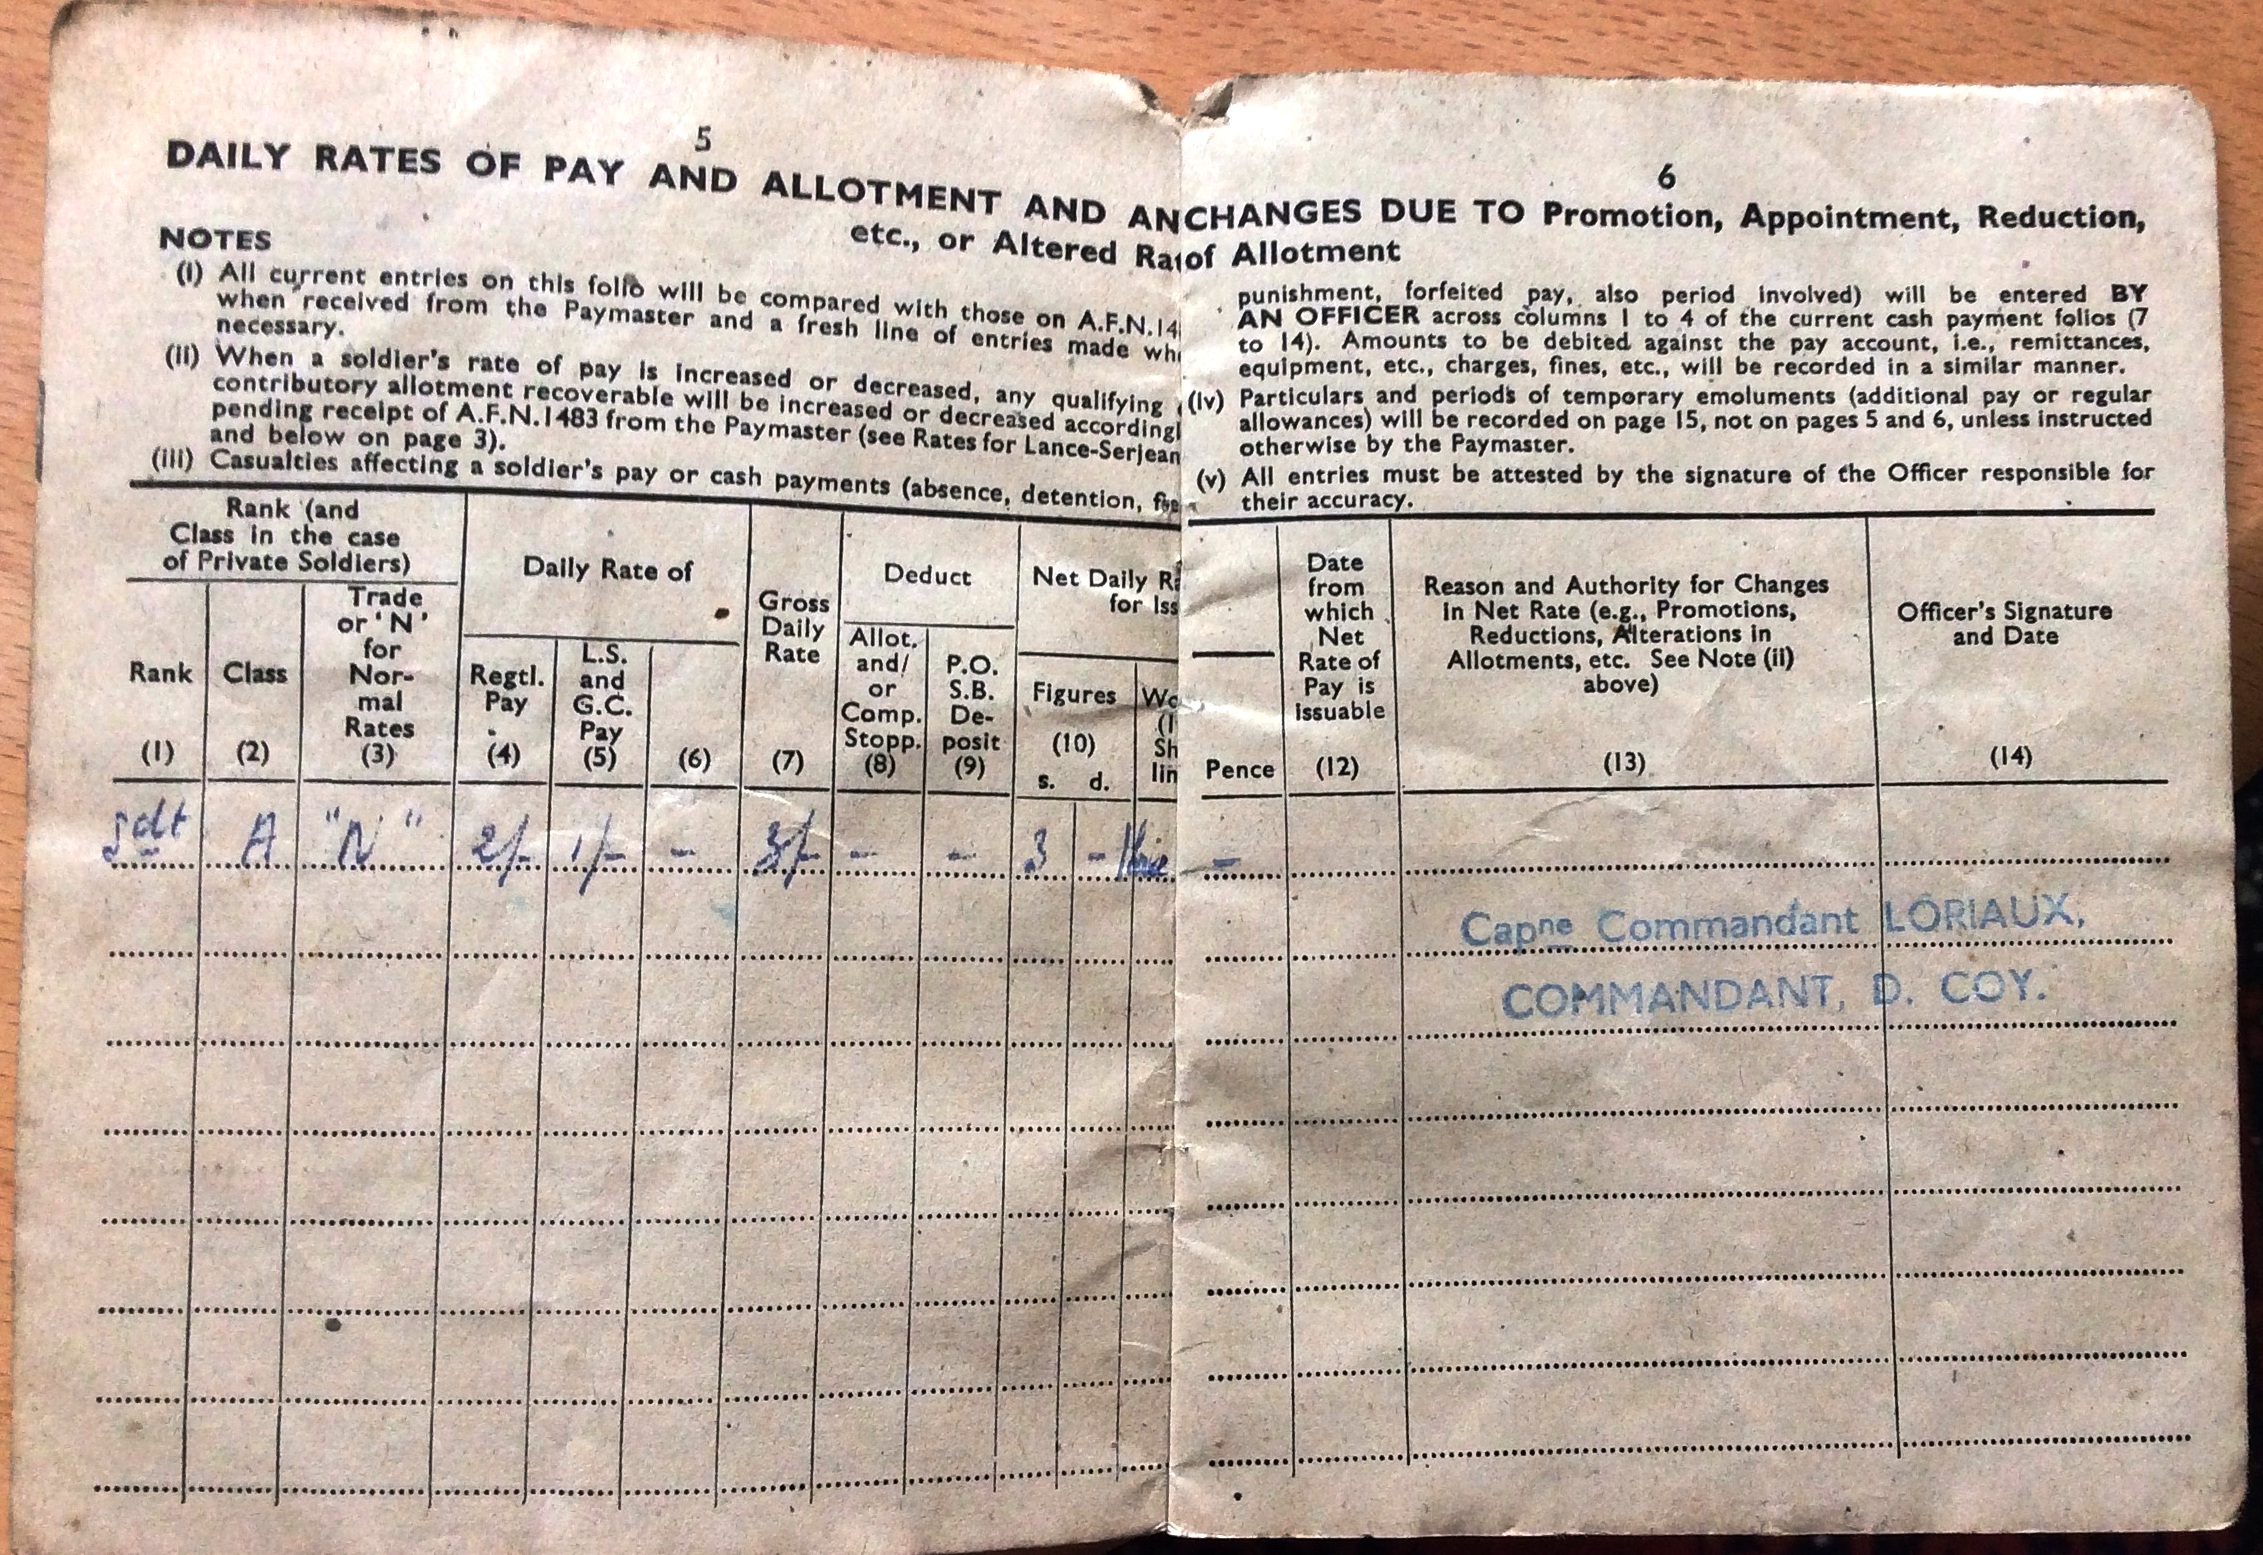 5
DAILY RATES OF PAY AND ALLOTMENT AND AN
etc., or Altered Ra
NOTES
(i) All current entries on this folio will be compared with those on A.F.N.14
when received from the Paymaster and a fresh line of entries made wh
necessary.
(ii) When a soldier's rate of pay is increased or decreased, any qualifying
contributory allotment recoverable will be increased or decreased accordingl
pending receipt of A.F.N.1483 from the Paymaster (see Rates for Lance-Serjean
and below on page 3).
(iii) Casualties affecting a soldier's pay or cash payments (absence, detention,
Rank (and
Class in the case
of Private Soldiers)
Daily Rate of
Gross
Daily
Rate
Deduct
Net Daily Ra
for Iss
Rank
Class
Trade
or 'N'
for
Nor-
mal
Rates
Regtl.
Pay
L.S.
and
G.C.
Pay
Allot.
and/
or
Comp.
Stopp.
P.O.
S.B.
De-
posit
Figures
Wo
(I
Sh
lin
(1) (2) (3) (4) (5) (6) (7) (8) (9) (10)
s. d.
Sdt A "N" 2/- 1/- - 3/- - - 3 -
6
CHANGES DUE TO Promotion, Appointment, Reduction,
of Allotment
punishment, forfeited pay, also period involved) will be entered BY
AN OFFICER across columns 1 to 4 of the current cash payment folios (7
to 14). Amounts to be debited against the pay account, i.e., remittances,
equipment, etc., charges, fines, etc., will be recorded in a similar manner.
(iv) Particulars and periods of temporary emoluments (additional pay or regular
allowances) will be recorded on page 15, not on pages 5 and 6, unless instructed
otherwise by the Paymaster.
(v) All entries must be attested by the signature of the Officer responsible for
their accuracy.
Pence
Date
from
which
Net
Rate of
Pay is
issuable
(12)
Reason and Authority for Changes
in Net Rate (e.g., Promotions,
Reductions, Alterations in
Allotments, etc. See Note (ii)
above)
(13)
Officer's Signature
and Date
(14)
-
Capne Commandant LORIAUX,
COMMANDANT, D. COY.